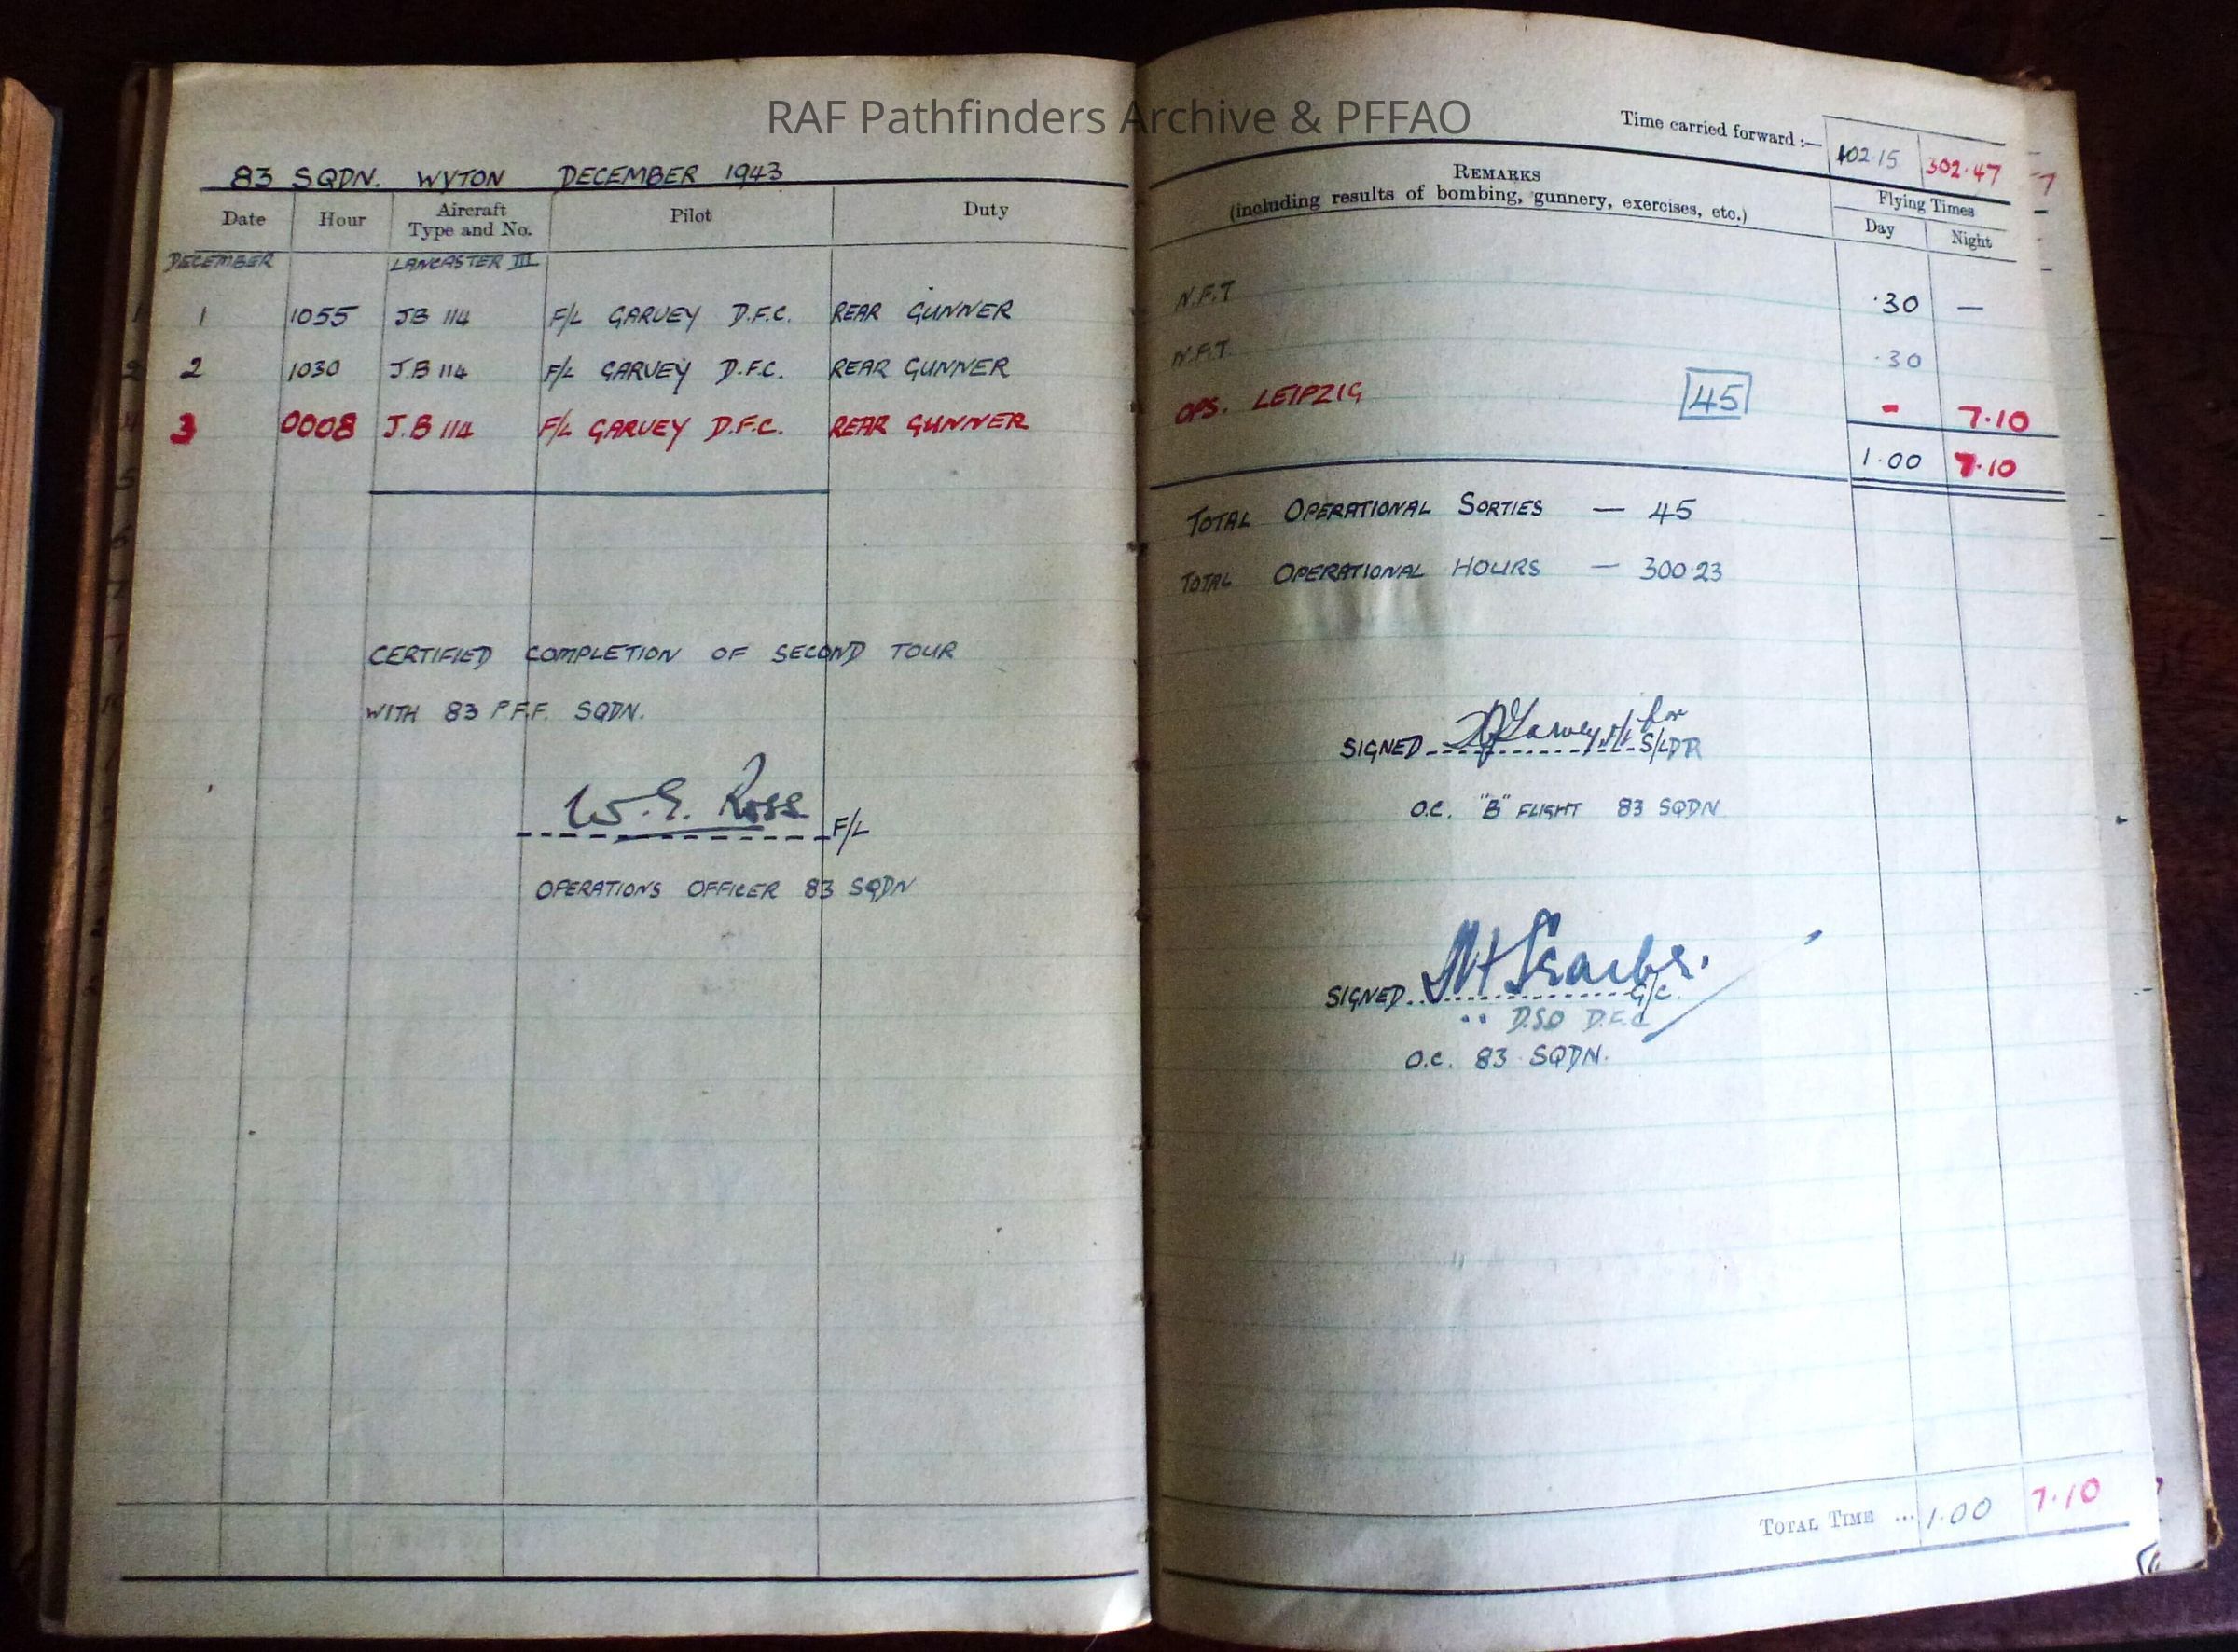 RAF Pathfinders Archive & PFFAO
83 SQDN. WYTON DECEMBER 1943
Date Hour Aircraft Type and No. Pilot Duty
DECEMBER LANCASTER III
1 1055 JB 114 F/L GARVEY D.F.C. REAR GUNNER
2 1030 J.B 114 F/L GARVEY D.F.C. REAR GUNNER
3 0008 J.B 114 F/L GARVEY D.F.C. REAR GUNNER
CERTIFIED COMPLETION OF SECOND TOUR
WITH 83 P.F.F. SQDN.
W.E. Ross F/L
OPERATIONS OFFICER 83 SQDN
Time carried forward :— 102.15 302.47
REMARKS
(including results of bombing, gunnery, exercises, etc.)
Flying Times
Day Night
N.F.T .30 —
N.F.T. .30
OPS. LEIPZIG 45 - 7.10
1.00 7.10
TOTAL OPERATIONAL SORTIES — 45
TOTAL OPERATIONAL HOURS — 300.23
SIGNED Garvey F/L for S/LDR
O.C. "B" FLIGHT 83 SQDN.
SIGNED G/C.
D.S.O D.F.C
O.C. 83 SQDN.
TOTAL TIME ... 1.00 7.10